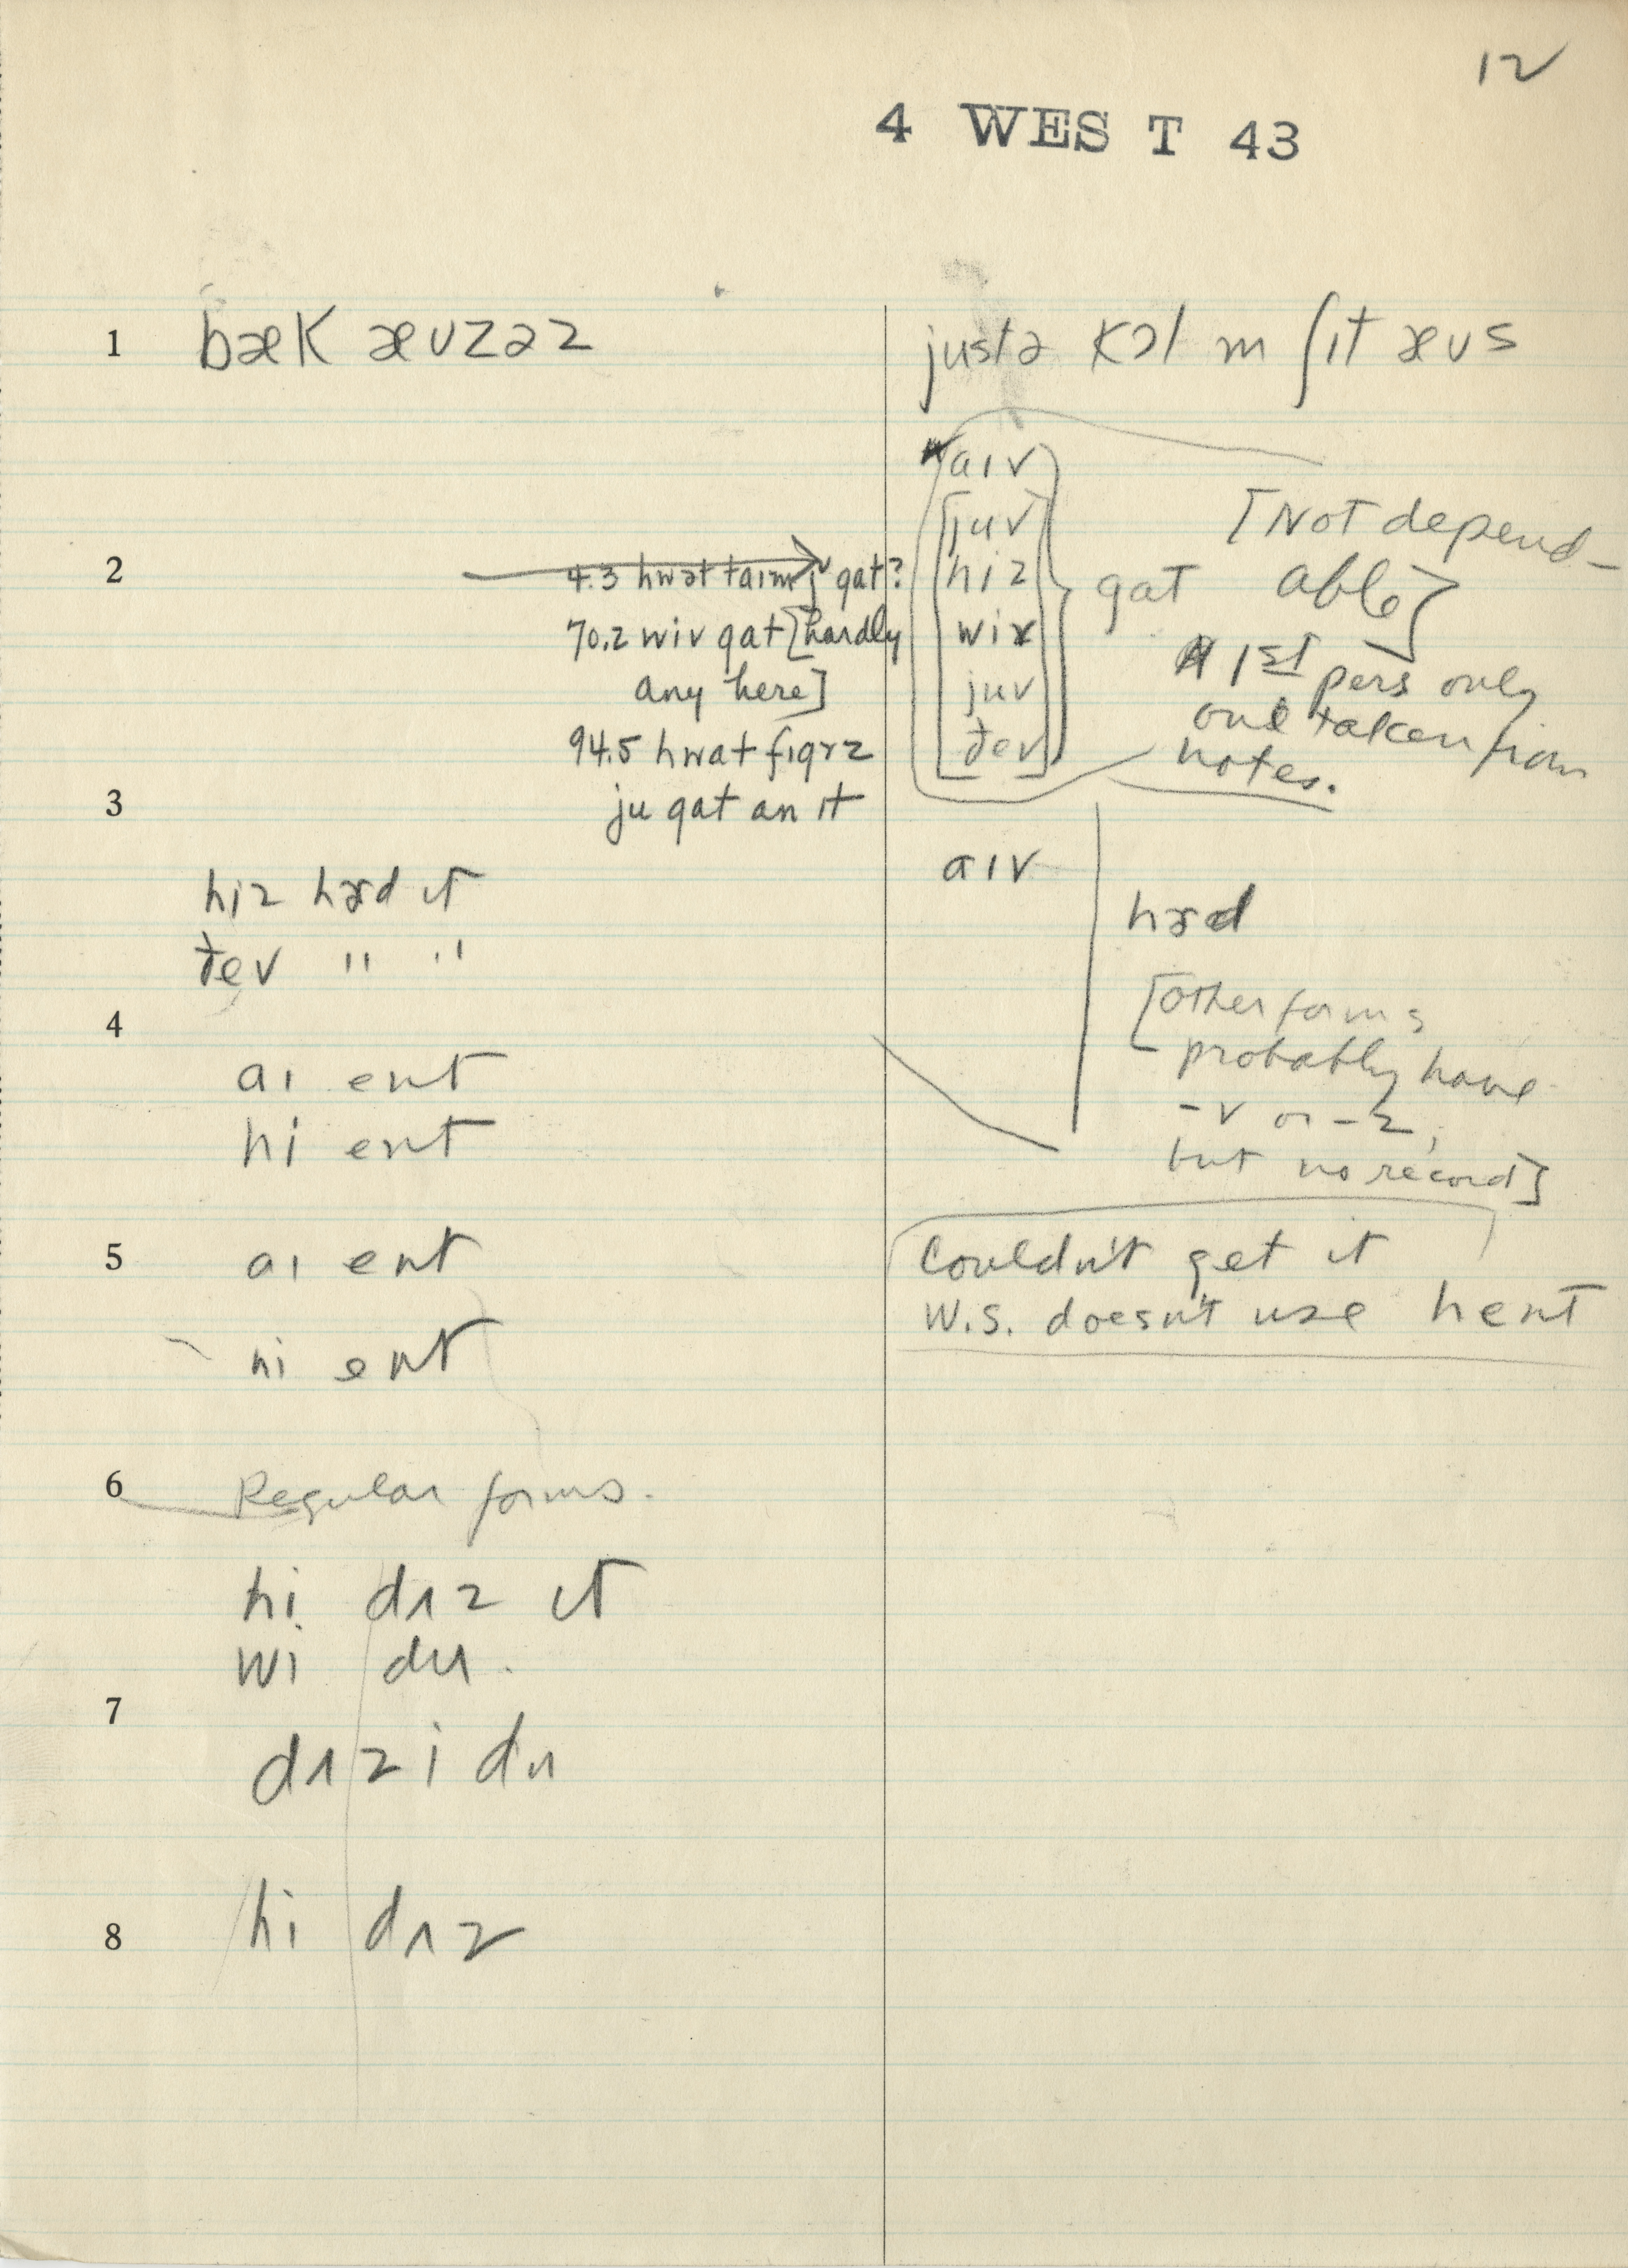 12
4 WEST 43
1 bæk æuzəz
justə kɔl m ʃit æus
aiv
[juv
2 4.3 hwət taim j gat?
hiz
gat
[Not depend-
able]
70.2 wiv gat [hardly
any here]
wiv
juv
ðev
1st pers only
one taken from
notes.
94.5 hwat figɚz
3 ju gat an it
aiv
hiz hɝd it
ðev " "
hɝd
4
[other forms
probably have
-v or -z,
but no record]
ai ent
hi ent
5 ai ent
hi ent
Couldn't get it
W.S. doesn't use hent
6 Regular forms.
hi dʌz it
wi du.
7
dʌz i du
8 hi dʌz